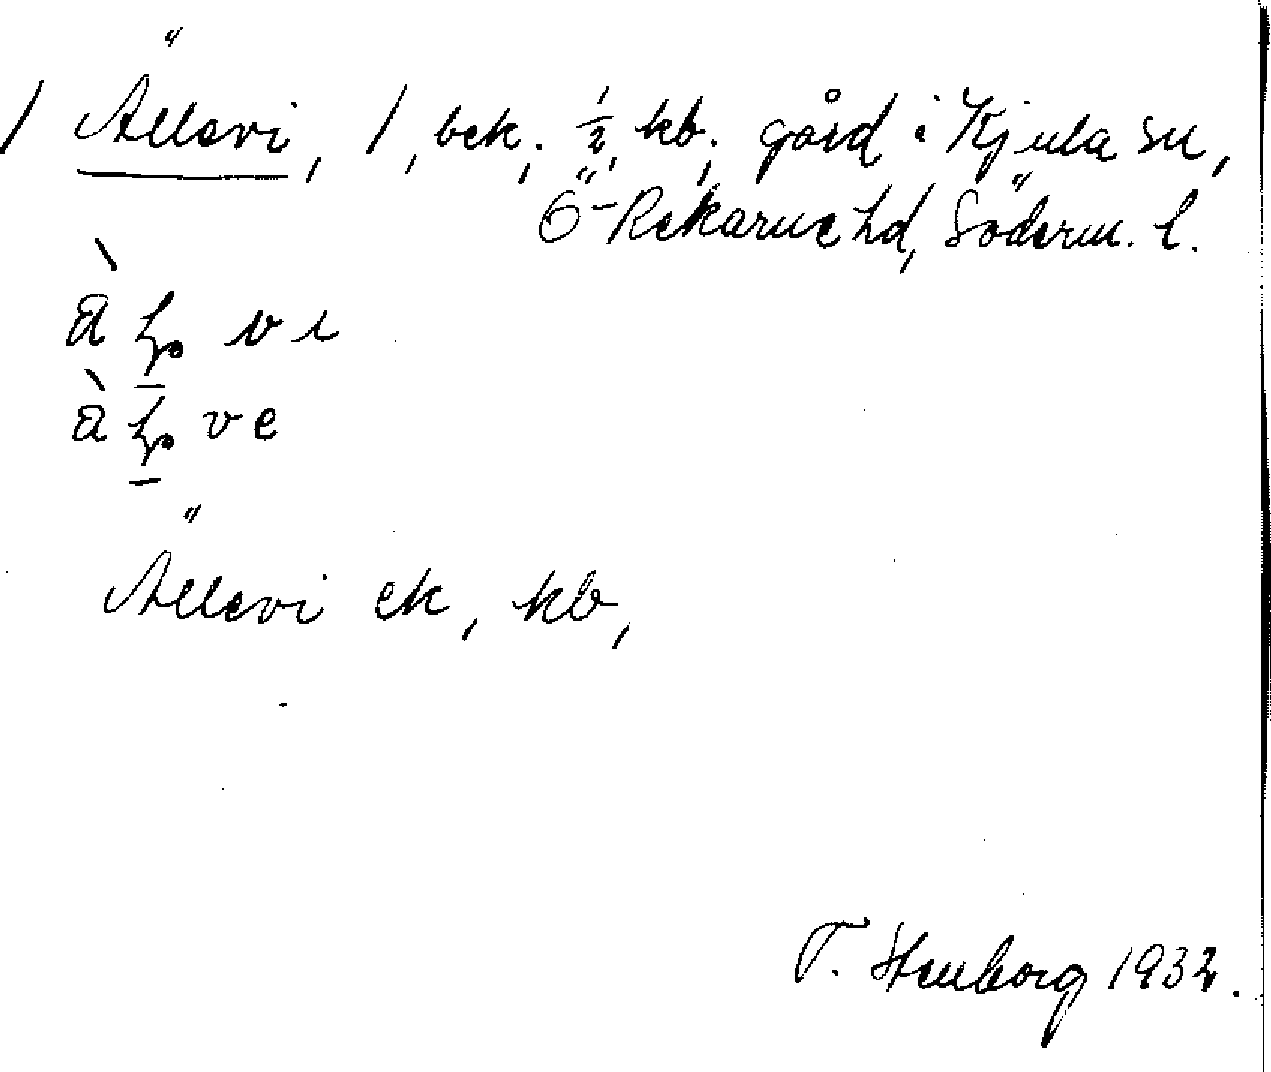 / Ällevi, 1, bek. ½, kb. gård i Kjula sn,
Ö-Rekarne hd, Söderm. l.
vi
ve
Ällevi ek, kb,
T. Stenborg 1932.